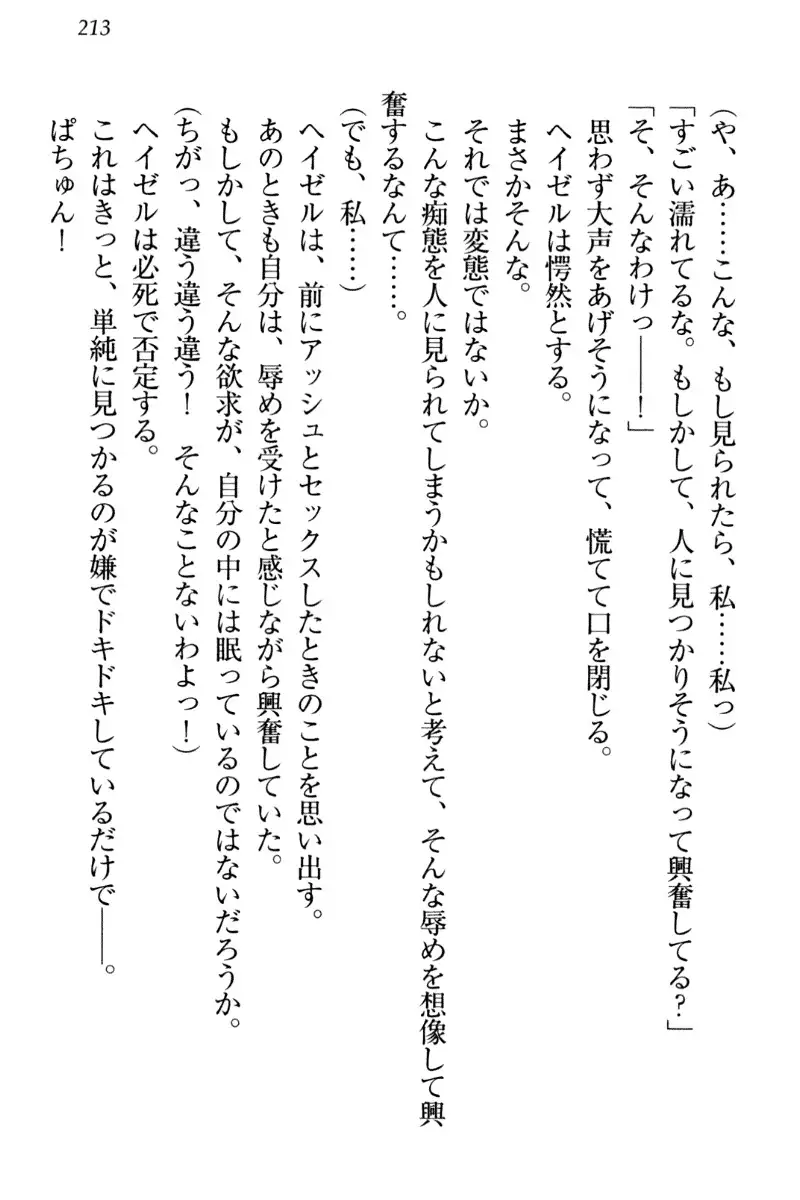 213
(や、あ……こんな、もし見られたら、私……私っ)
「すごい濡れてるな。もしかして、人に見つかりそうになって興奮してる?」
「そ、そんなわけっ――!」
思わず大声をあげそうになって、慌てて口を閉じる。
ヘイゼルは愕然とする。
まさかそんな。
それでは変態ではないか。
こんな痴態を人に見られてしまうかもしれないと考えて、そんな辱めを想像して興
奮するなんて……。
(でも、私……)
ヘイゼルは、前にアッシュとセックスしたときのことを思い出す。
あのときも自分は、辱めを受けたと感じながら興奮していた。
もしかして、そんな欲求が、自分の中には眠っているのではないだろうか。
(ちがっ、違う違う違う! そんなことないわよっ!)
ヘイゼルは必死で否定する。
これはきっと、単純に見つかるのが嫌でドキドキしているだけで――。
ぱちゅん!